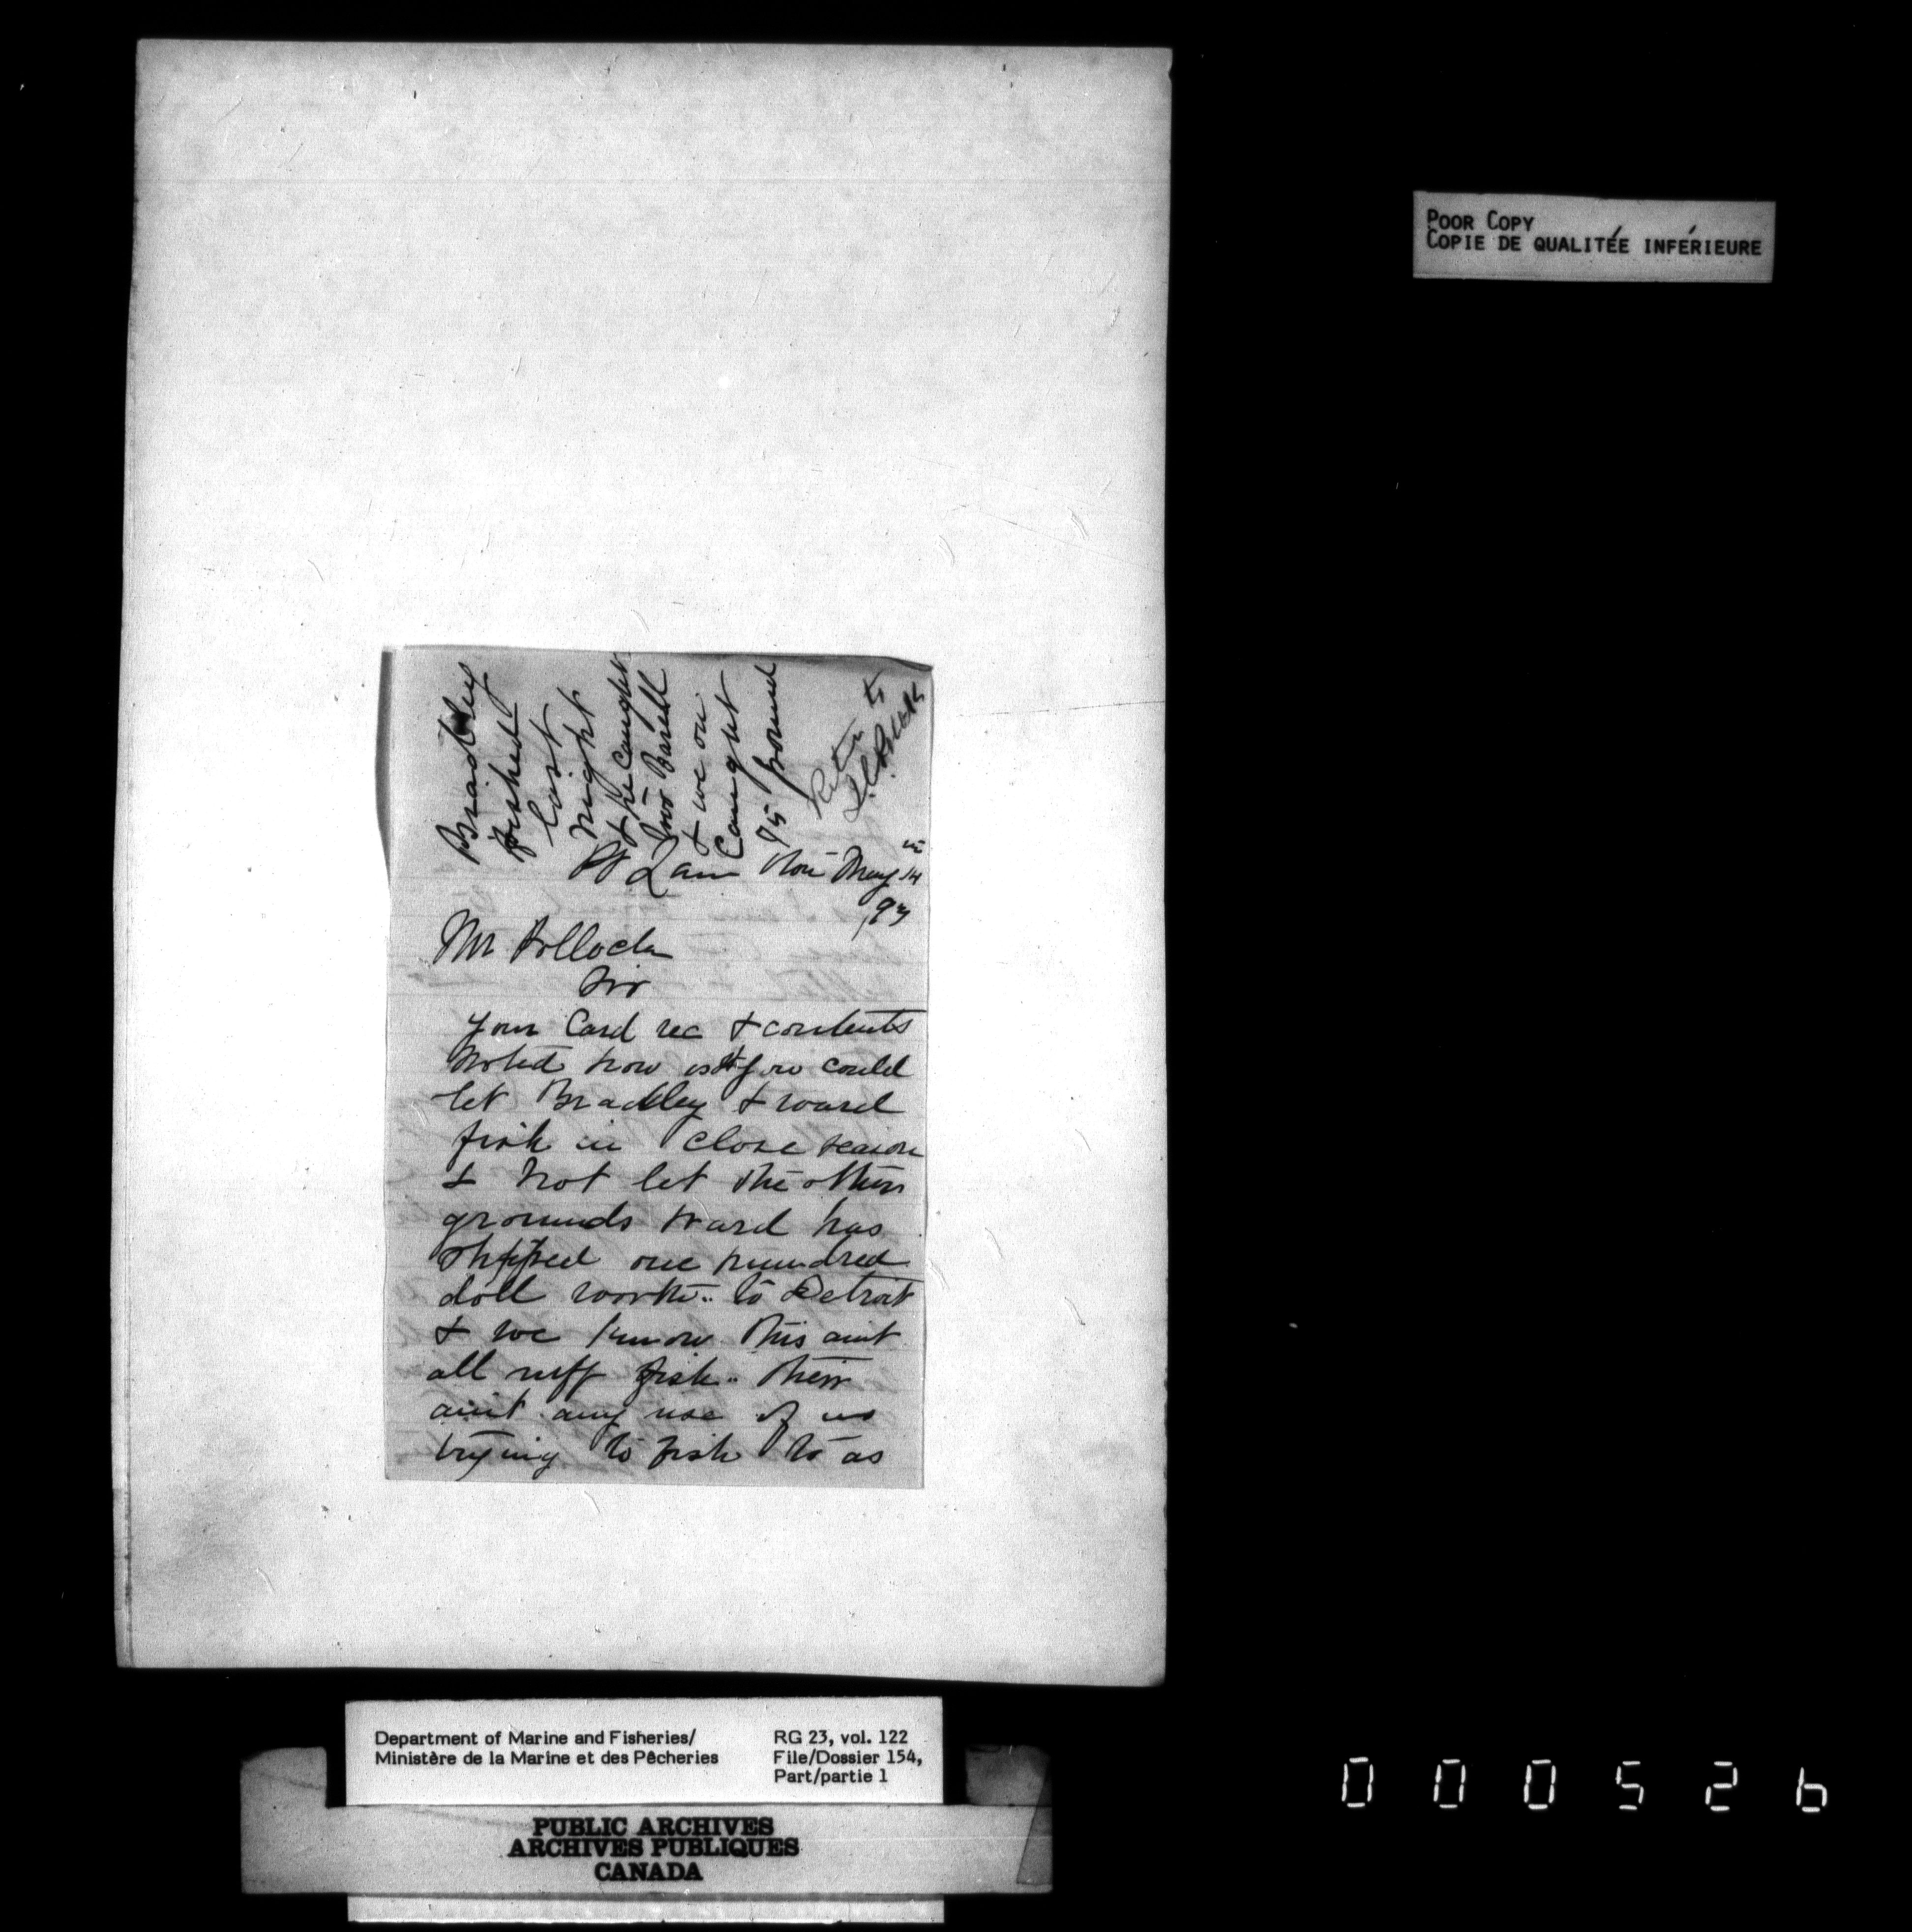 POOR COPY
COPIE DE QUALITÉE INFÉRIEURE
Bradley
fished
last
night
& he caught
two Barell
& we on
caught
75 pound
Return to
Pt Lam Mon May 14
93
Mr Pollock
Sir
Your Card rec & contents
noted how is it you could
let Bradley & ward
fish in close season
& not let the others
grounds ward has
shipped one hundred
doll worth to Detroit
& we know this aint
all ruff fish their
aint any use of us
trying to fish to as
Department of Marine and Fisheries/
Ministère de la Marine et des Pêcheries
RG 23, vol. 122
File/Dossier 154,
Part/partie 1
PUBLIC ARCHIVES
ARCHIVES PUBLIQUES
CANADA
000526